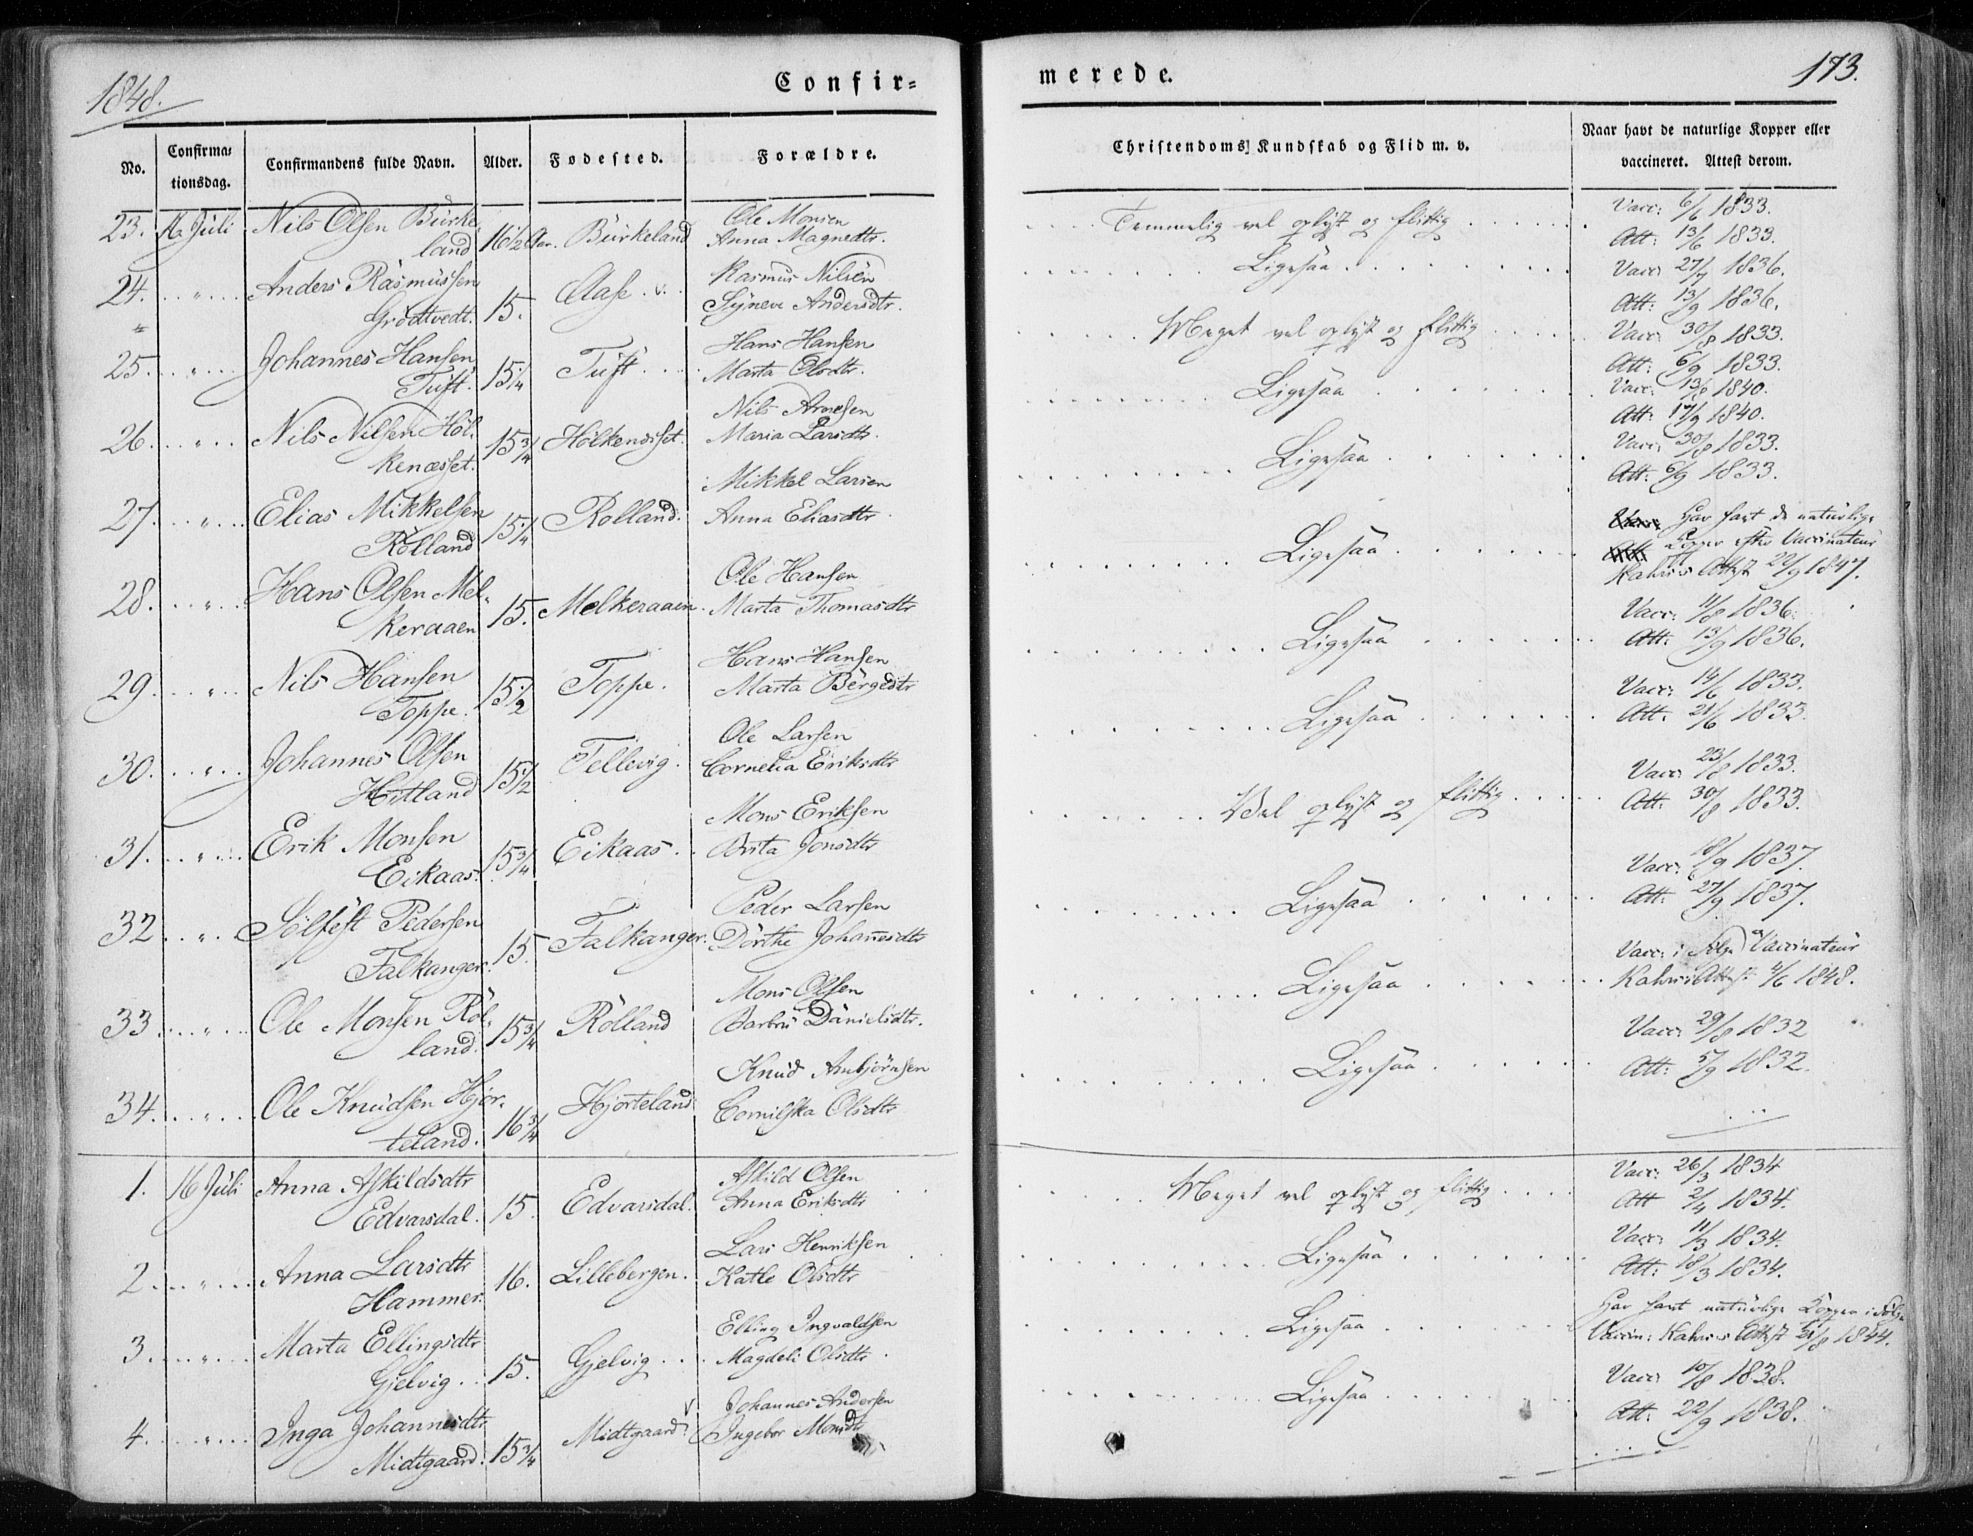 1848.
Confir=
No.
Confirma=
tionsdag.
Confirmandens fulde Navn.
Alder.
Fødested.
Forældre.
23. 16 Juli Nils Olsen Birke-
land 16 1/2 Aar. Birkeland
Ole Monsen
Anna Magnedtr.
24. " Anders Rasmussen
Grödtvedt. 15. Aase
Rasmus Nilsen
Syneve Andersdtr.
25. " Johannes Hansen
Tuft. 15 1/4 Tuft
Hans Hansen
Marta Olsdtr.
26. " Nils Nilsen Hol-
kenæsset. 15 3/4 Holkenæsset.
Nils Arnesen
Maria Larsdtr.
27. " Elias Mikkelsen
Rolland 15 1/4 Rolland.
Mikkel Larsen
Anna Eliasdtr
28. " Hans Olsen Mel-
keraaen 15. Melkeraaen.
Ole Hansen
Marta Thomasdtr
29. " Nils Hansen
Toppe. 15 1/2 Toppe.
Hans Hansen
Marta Børgedtr
30. " Johannes Olsen
Hitland 15 1/2 Tellevig.
Ole Larsen
Cornelia Eriksdtr
31. " Erik Monsen
Eikaas. 15 3/4 Eikaas.
Mons Eriksen
Brita Jonsdtr
32. " Sölfest Pedersen
Falkanger. 15. Falkanger.
Peder Larsen
Dorthe Johannesdtr
33. " Ole Monsen Rol-
land. 15 3/4 Rolland
Mons Olsen
Barbru Danielsdtr.
34. " Ole Knudsen Hjor-
teland. 16 3/4 Hjorteland
Knud Anbjörnsen
Cornilska Olsdtr
1. 16 Juli Anna Askildsdtr
Edvarsdal. 15. Edvarsdal.
Askild Olsen
Anna Eriksdtr
2. " Anna Larsdtr
Hammer. 16. Lillebergen.
Lars Henriksen
Katle Olsdtr
3. " Marta Ellingsdtr
Gjelvig. 15. Gjelvig
Elling Ingvaldsen
Magdeli Olsdtr
4. " Inga Johannesdtr
Midtgaard. 15 3/4 Midtgaard
Johannes Andersen
Ingebor Monsdtr
merede.
173.
Christendoms Kundskab og Flid m. v.
Naar havt de naturlige Kopper eller
vaccineret. Attest derom.
Temmelig vel oplyst og flittig
Vacc: 6/6 1833.
Att: 13/6 1833.
Ligesaa
Vacc: 27/7 1836.
Att: 13/9 1836.
Meget vel oplyst og flittig
Vacc: 30/8 1833.
Att: 6/9 1833.
Ligesaa
Vacc: 13/8 1840.
Att: 17/9 1840.
Ligesaa
Vacc: 30/8 1833.
Att: 6/9 1833.
Ligesaa
Har havt de naturlige
Kopper efter Vaccinateur
Kahrs's Attest 22/9 1847.
Ligesaa
Vacc: 11/8 1836.
Att: 13/9 1836.
Ligesaa
Vacc: 14/6 1833.
Att: 21/6 1833.
Vel oplyst og flittig
Vacc: 23/8 1833.
Att: 30/8 1833.
Ligesaa
Vacc: 18/9 1837.
Att: 27/9 1837.
Ligesaa
Vacc: i Følge Vaccinateur
Kahrs's Attest 4/6 1848.
Ligesaa
Vacc: 29/8 1832
Att: 5/9 1832.
Meget vel oplyst og flittig
Vacc: 26/3 1834
Att 2/4 1834.
Ligesaa
Vacc: 11/3 1834.
Att: 18/3 1834.
Ligesaa
Har havt naturlige Kopper i Følge
Vaccin: Kahrs's Attest 21/8 1844.
Ligesaa
Vacc: 10/8 1838.
Att: 22/9 1838.